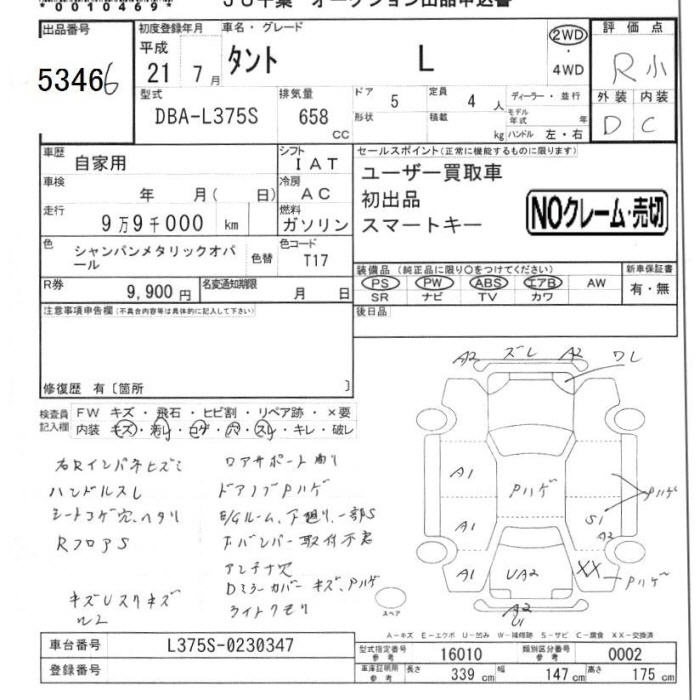 *0010469*
JU千葉 オークション出品申込書
出品番号 初度登録年月 車名・グレード 評価点
53466 平成 21 7月 タント L 2WD 4WD R小
型式 排気量 ドア 定員 ディーラー・並行 外装 内装
DBA-L375S 658 CC 5 4人 モデル年式 年 D C
形状 積載 kg ハンドル 左・右
車歴 自家用 シフト IAT セールスポイント(正常に機能するものに限ります)
車検 年 月( 日) 冷房 AC ユーザー買取車
走行 9万9千000 km 燃料 ガソリン 初出品
スマートキー NOクレーム・売切
色 シャンパンメタリックオパール 色替 色コード T17
装備品(純正品に限り○をつけてください) 新車保証書
R券 9,900円 名変通知期限 月 日 PS PW ABS エアB AW 有・無
SR ナビ TV カワ
注意事項申告欄(不具合内容等は具体的に記入して下さい) 後日品
修復歴 有〔箇所 〕
検査員記入欄 FW キズ・飛石・ヒビ割・リペア跡・×要
内装 キズ・汚レ・コゲ・穴・スレ・キレ・破レ
右Rインパネヒズミ
ハンドルスレ
シートコゲ穴、ヘタリ
RフロアS
ドアノブPハゲ
E/Gルーム、下廻り、一部S
アンテナ欠
Dミラーカバー キズ、Pハゲ
ライトクモリ
A2 ズレ A2 ワレ
A1 Pハゲ Pハゲ
A1 S1 A2
A1 UA2 XX Pハゲ
スペア A2 U1
A-キズ E-エクボ U-凹み W-補修跡 S-サビ C-腐食 XX-交換済
車台番号 L375S-0230347 型式指定番号 参考 16010 類別区分番号 参考 0002
登録番号 車庫証明用 参考 長さ 339 cm 幅 147 cm 高さ 175 cm